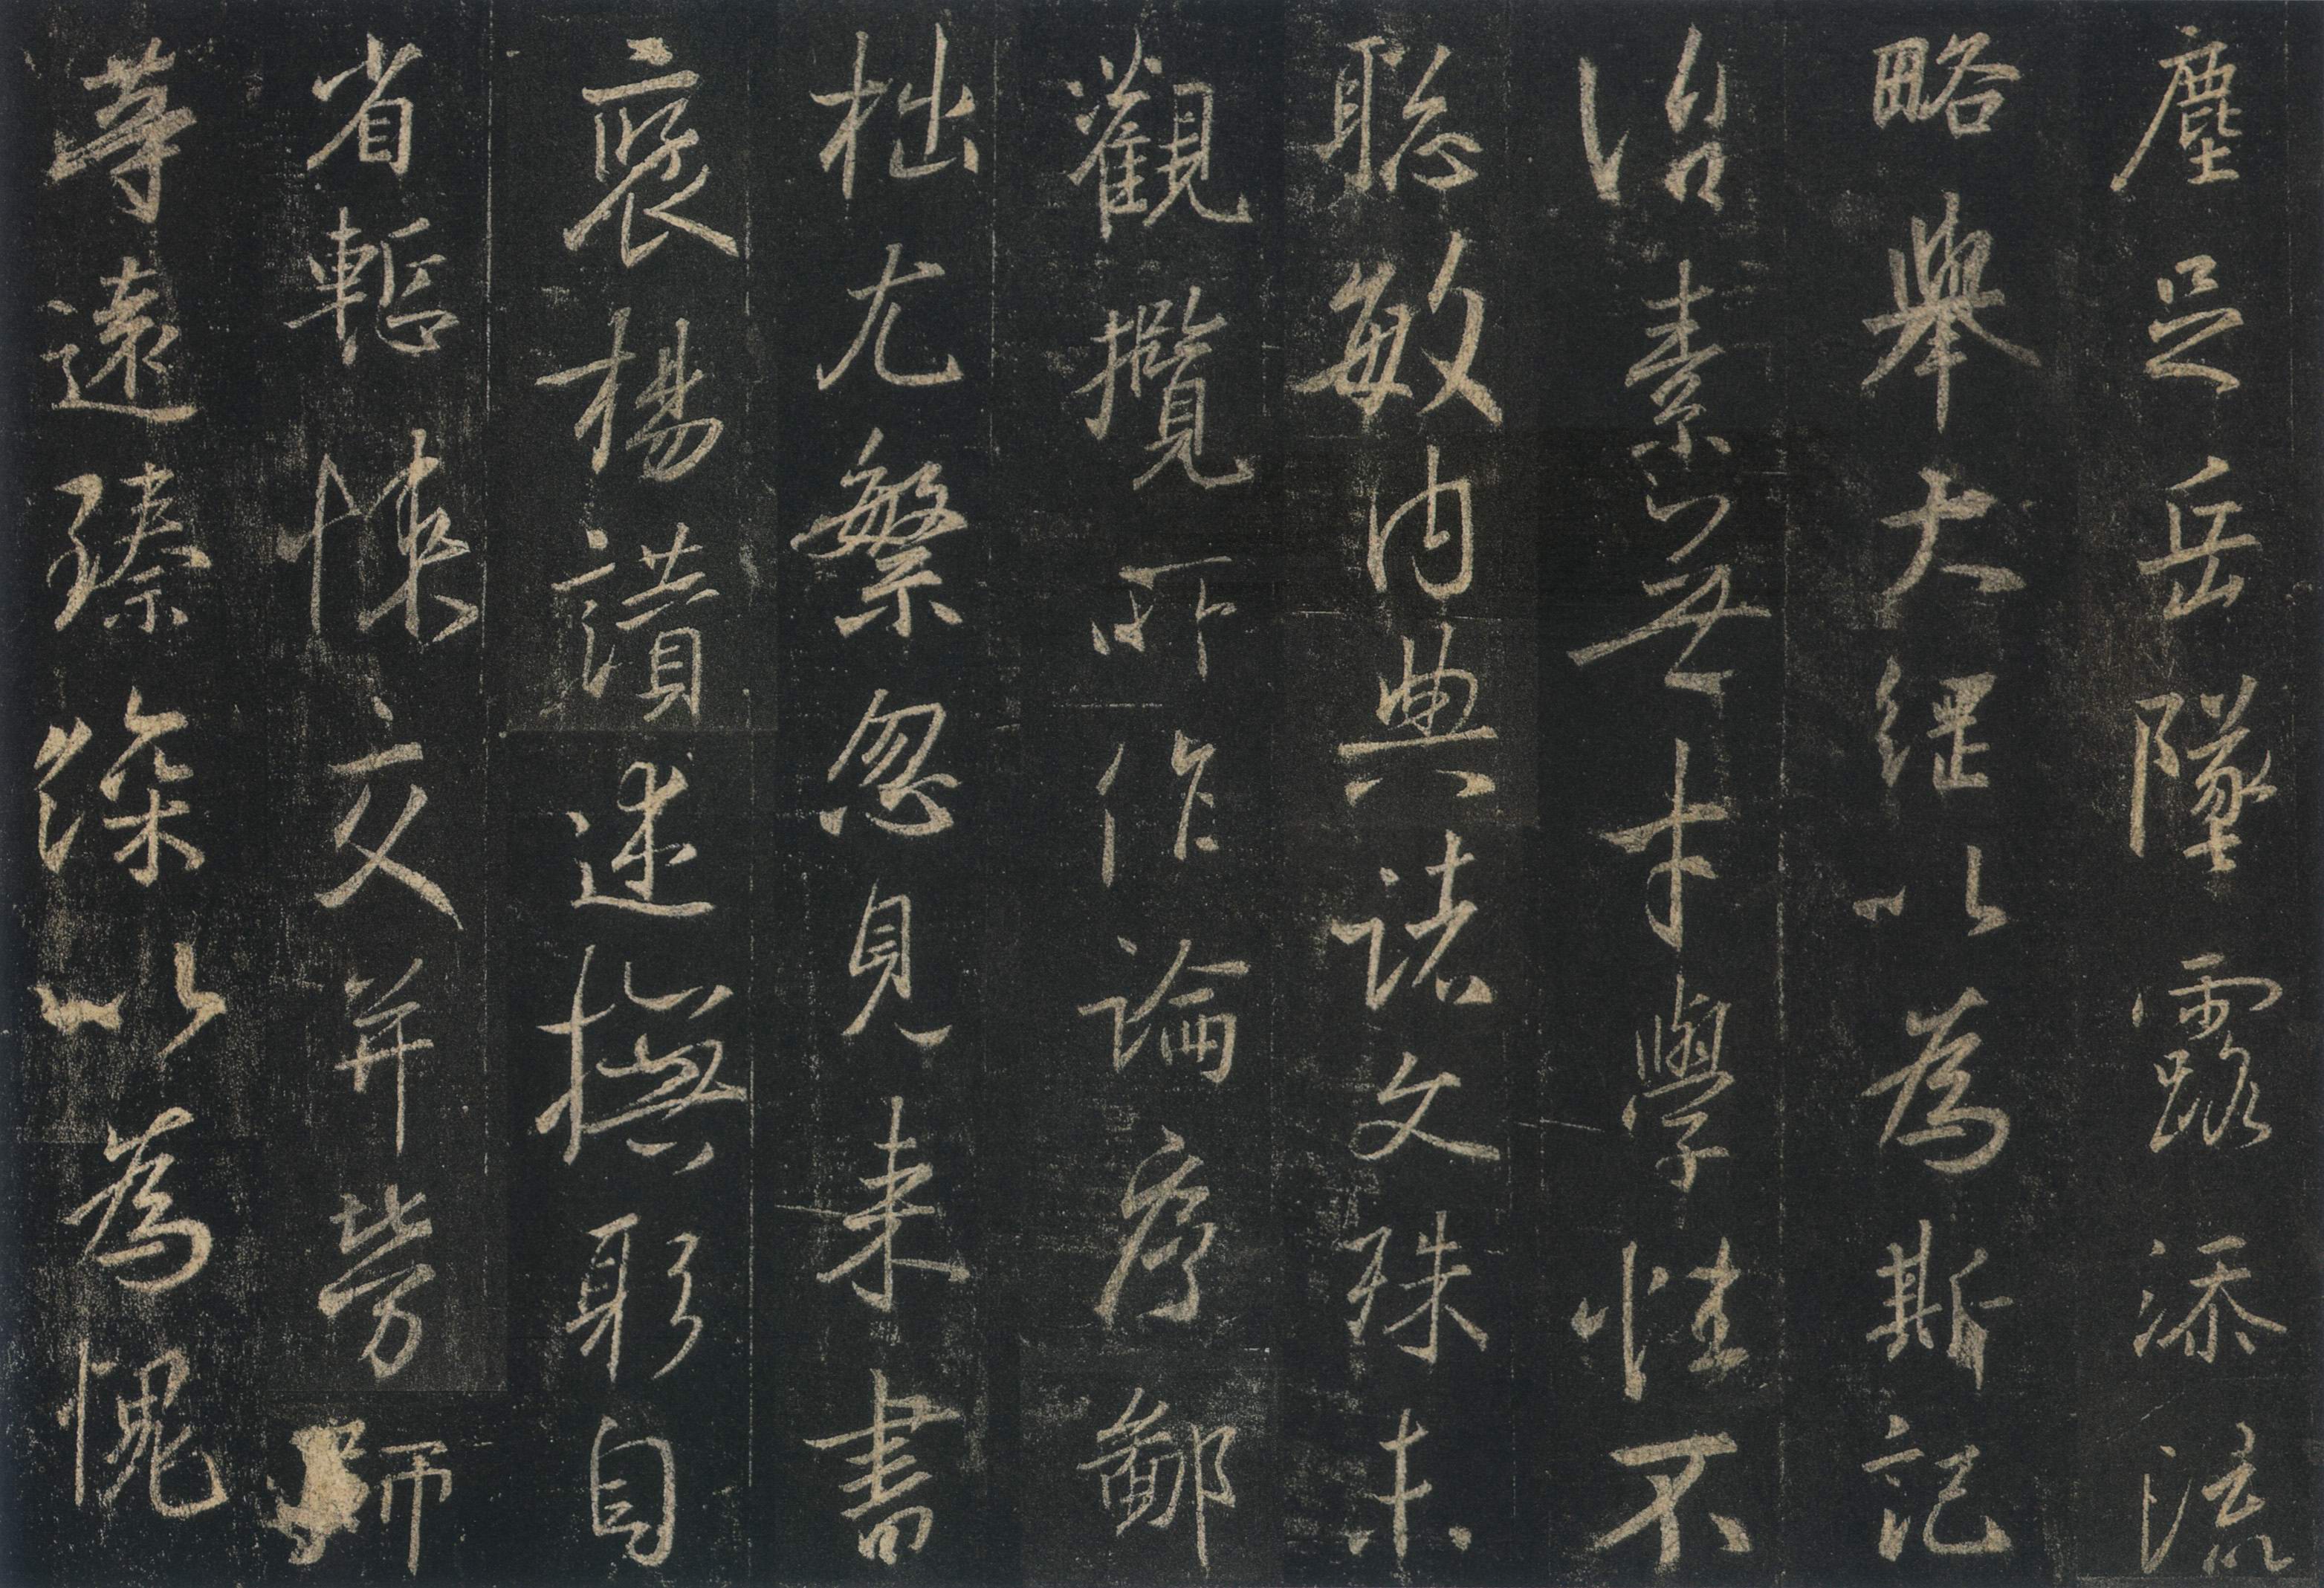 塵足岳墜露添流
略舉大綱以為斯記
治素無才學性不
聡敏內典諸文殊未
觀攬所作論序鄙
拙尤繁忽見来書
褒揚讃述撫躬自
省慙悚交并勞師
等遠臻深以為愧